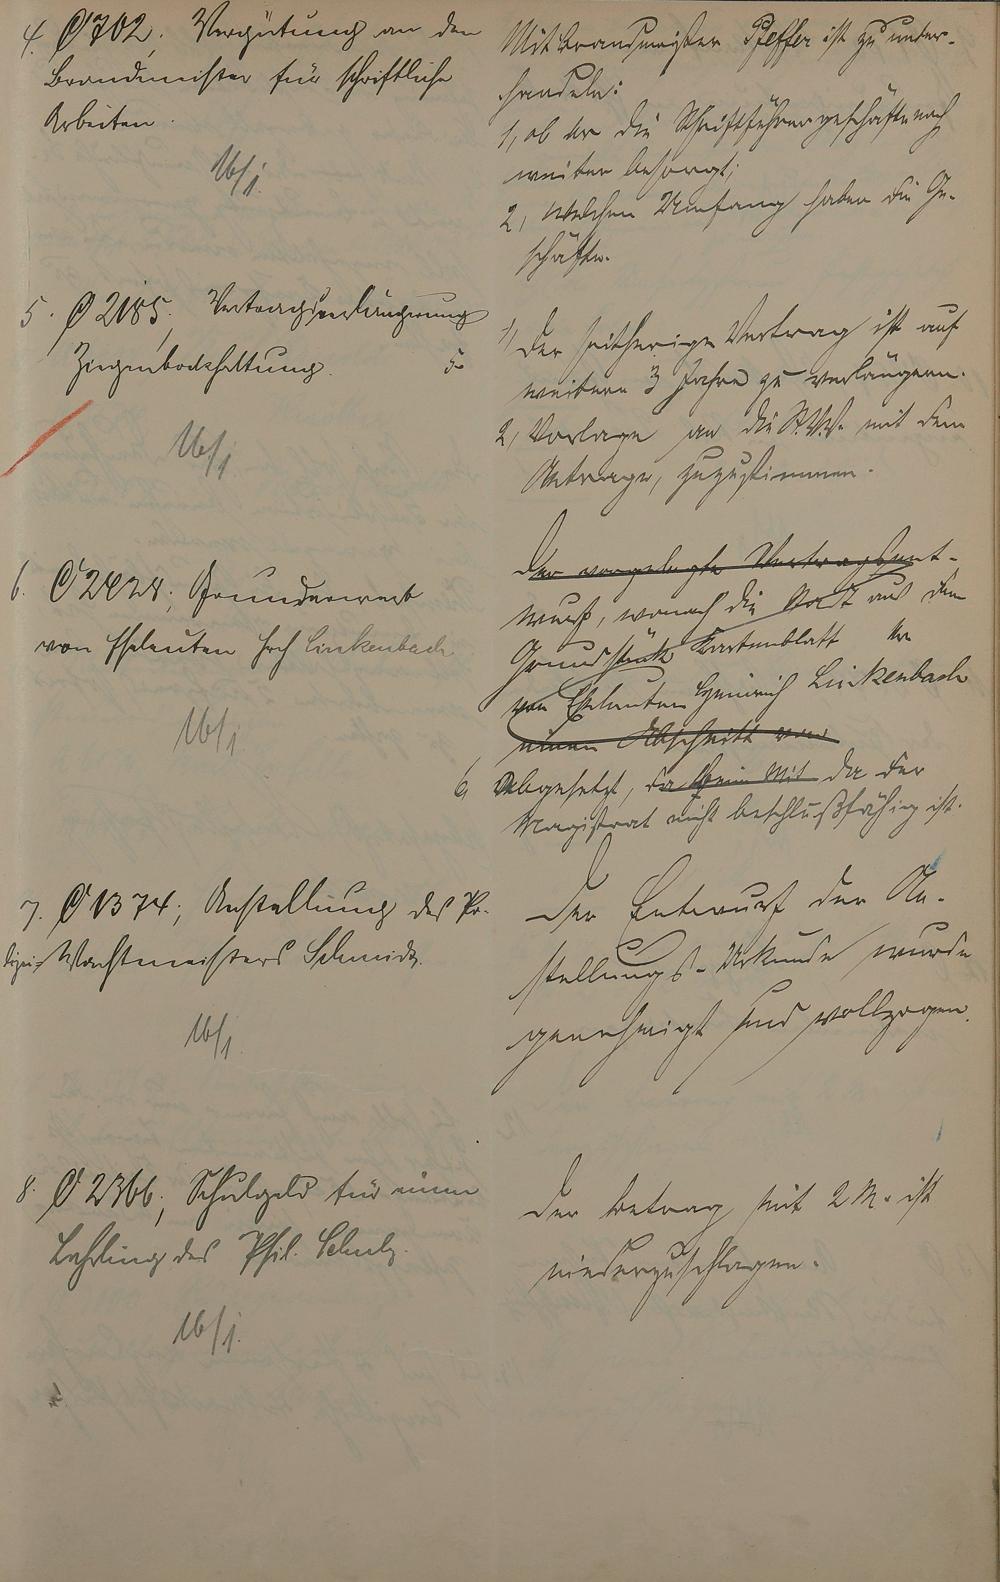 4. C 702; Vergütung an den
Brandmeister für schriftliche
Arbeiten.
16/1.
Mit Brandmeister Pfeffer ist zu unter-
handeln:
1, ob er die Schriftführergeschäfte noch
weiter besorgt;
2, welchen Umfang haben die Ge-
schäfte.
5. C 2185; Vertragsverlängerung
Ziegenbockhaltung.
16/1
5.
1, Der seitherige Vertrag ist auf
weitere 3 Jahre zu verlängern.
2, Vorlage an die St.V.V. mit dem
Antrage, zuzustimmen.
6. C 2424; Grunderwerb
von Eheleuten Hch Linkenbach
16/1
Der vorgelegte Vertragsent-
wurf, wonach die Stadt aus dem
Grundstück Kartenblatt Nr
von Eheleuten Heinrich Linkenbach
einen Abschnitt von
6, Abgesetzt, da kein Mit da der
Magistrat nicht beschlußfähig ist.
7. C 1374; Anstellung des Po-
lizei-Wachtmeisters Schmidt.
16/1.
Der Entwurf der An-
stellungs-Urkunde wurde
genehmigt und vollzogen.
8. C 2366; Schulgeld für einen
Lehrling des Phil. Schulz.
16/1.
Der Betrag mit 2 M. ist
niederzuschlagen.